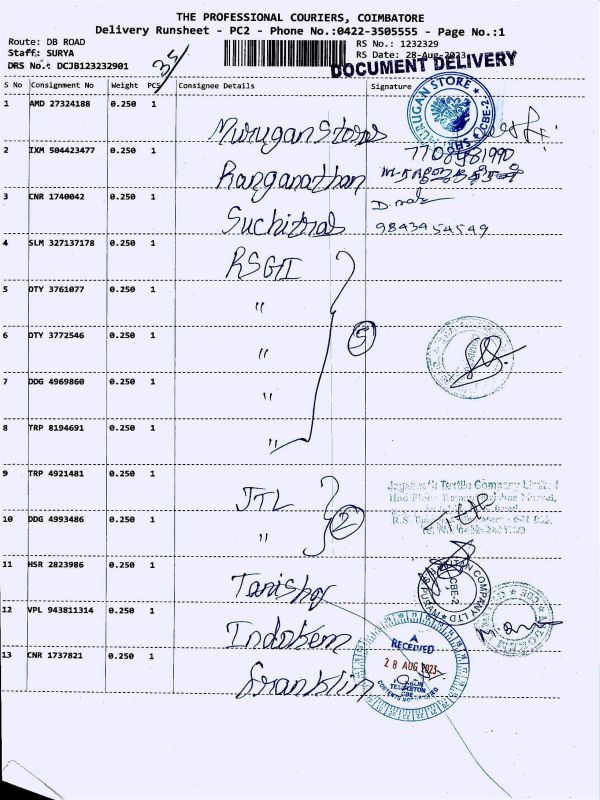 THE PROFESSIONAL COURIERS, COIMBATORE
Delivery Runsheet - PC2 - Phone No.:0422-3505555 - Page No.:1
Route: DB ROAD
RS No.: 1232329
Staff: SURYA
RS Date: 28-Aug-2023
DRS No.: DCJB123232901
DOCUMENT DELIVERY
S No Consignment No Weight PCS Consignee Details Signature
1 AMD 27324188 0.250 1 Murugan Stores
MURUGAN STORE CBE-2
7708481990
2 IXM 504423477 0.250 1 Ranganathan
3 CNR 1740042 0.250 1 Suchitras
9843954549
4 SLM 327137178 0.250 1 RSGI
5 OTY 3761077 0.250 1 "
6 OTY 3772546 0.250 1 " 5
7 DDG 4969860 0.250 1 "
8 TRP 8194691 0.250 1 "
9 TRP 4921481 0.250 1 JTL
Textile Company Limited
10 DDG 4993486 0.250 1 " 2
11 HSR 2823986 0.250 1 Tanishq
TITAN COMPANY LTD CBE-2
12 VPL 943811314 0.250 1 Indokem
13 CNR 1737821 0.250 1 Franklin
RECEIVED
28 AUG 2023
FRANKLIN
TEMPLETON
CBE
CONTENTS NOT VERIFIED